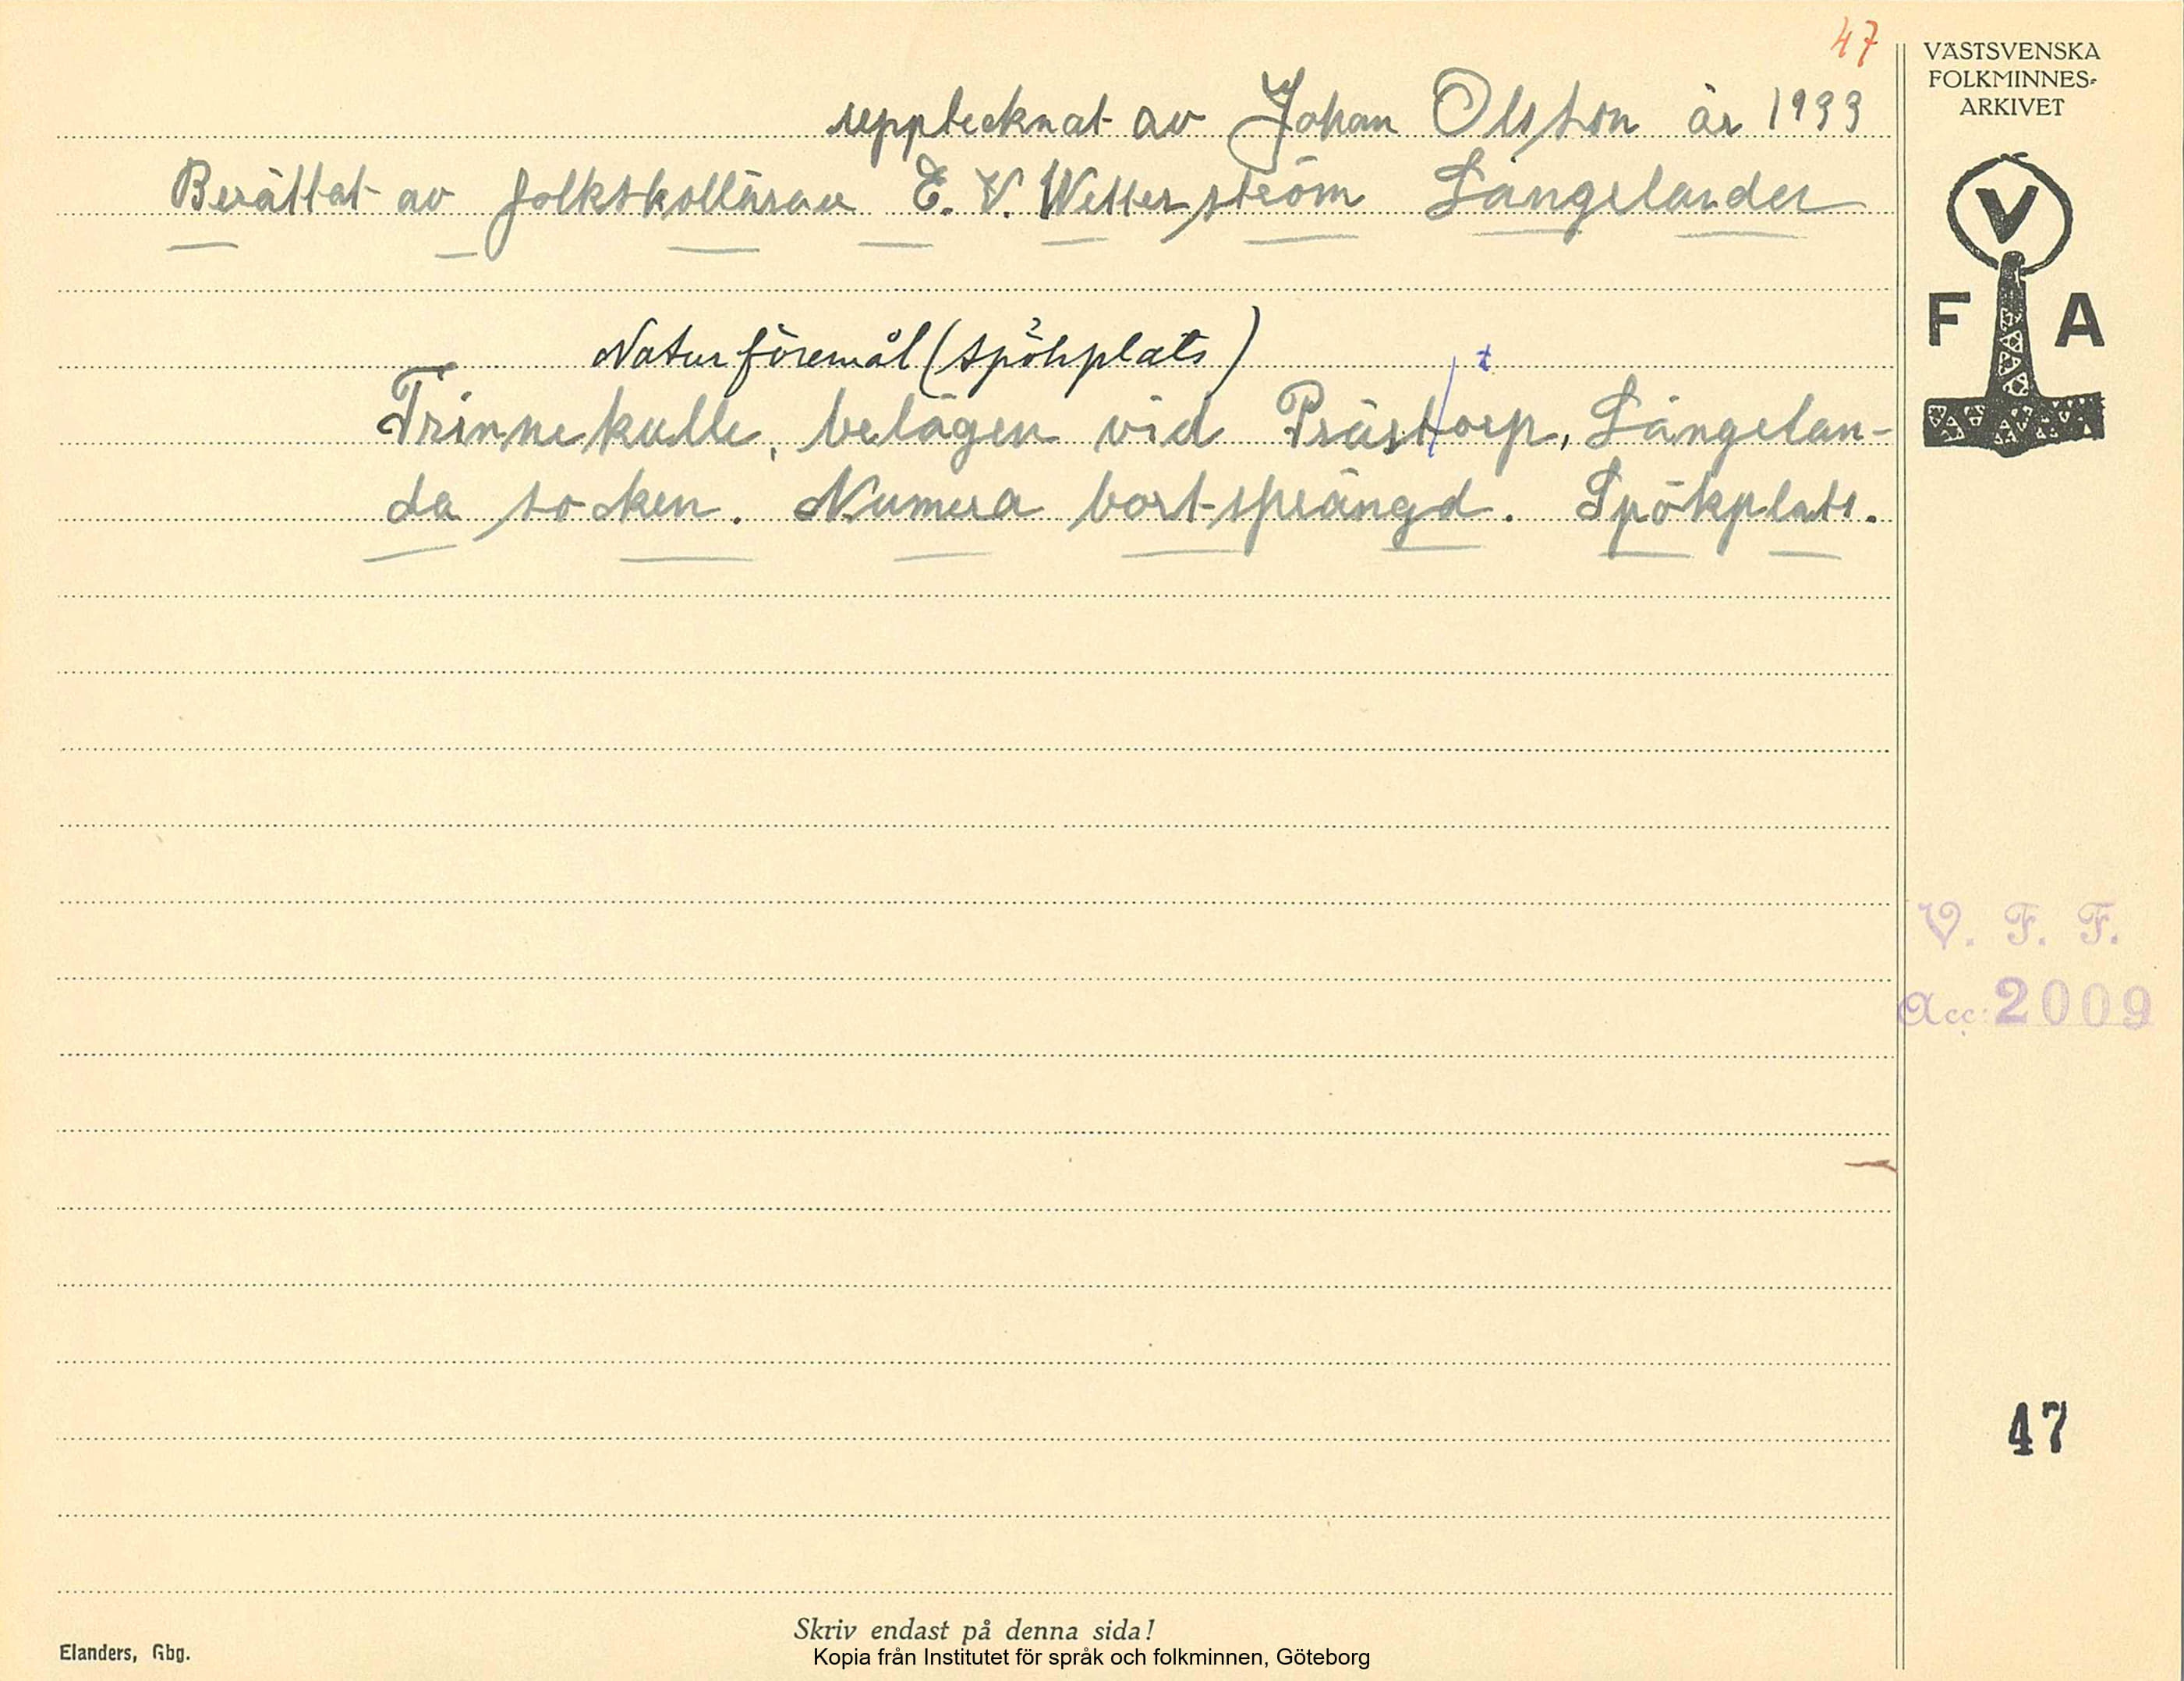 47
upptecknat av Johan Olsson år 1933
Berättat av folkskolläraren E. V. Wetterström Långelanda
Naturföremål (spökplats)
t
Trinnekulle, belägen vid Prästorp, Långelan-
da socken. Numera bortsprängd. Spökplats.
VÄSTSVENSKA
FOLKMINNES-
ARKIVET
V
F A
V. F. F.
Acc: 2009
47
Skriv endast på denna sida!
Elanders, Gbg.
Kopia från Institutet för språk och folkminnen, Göteborg